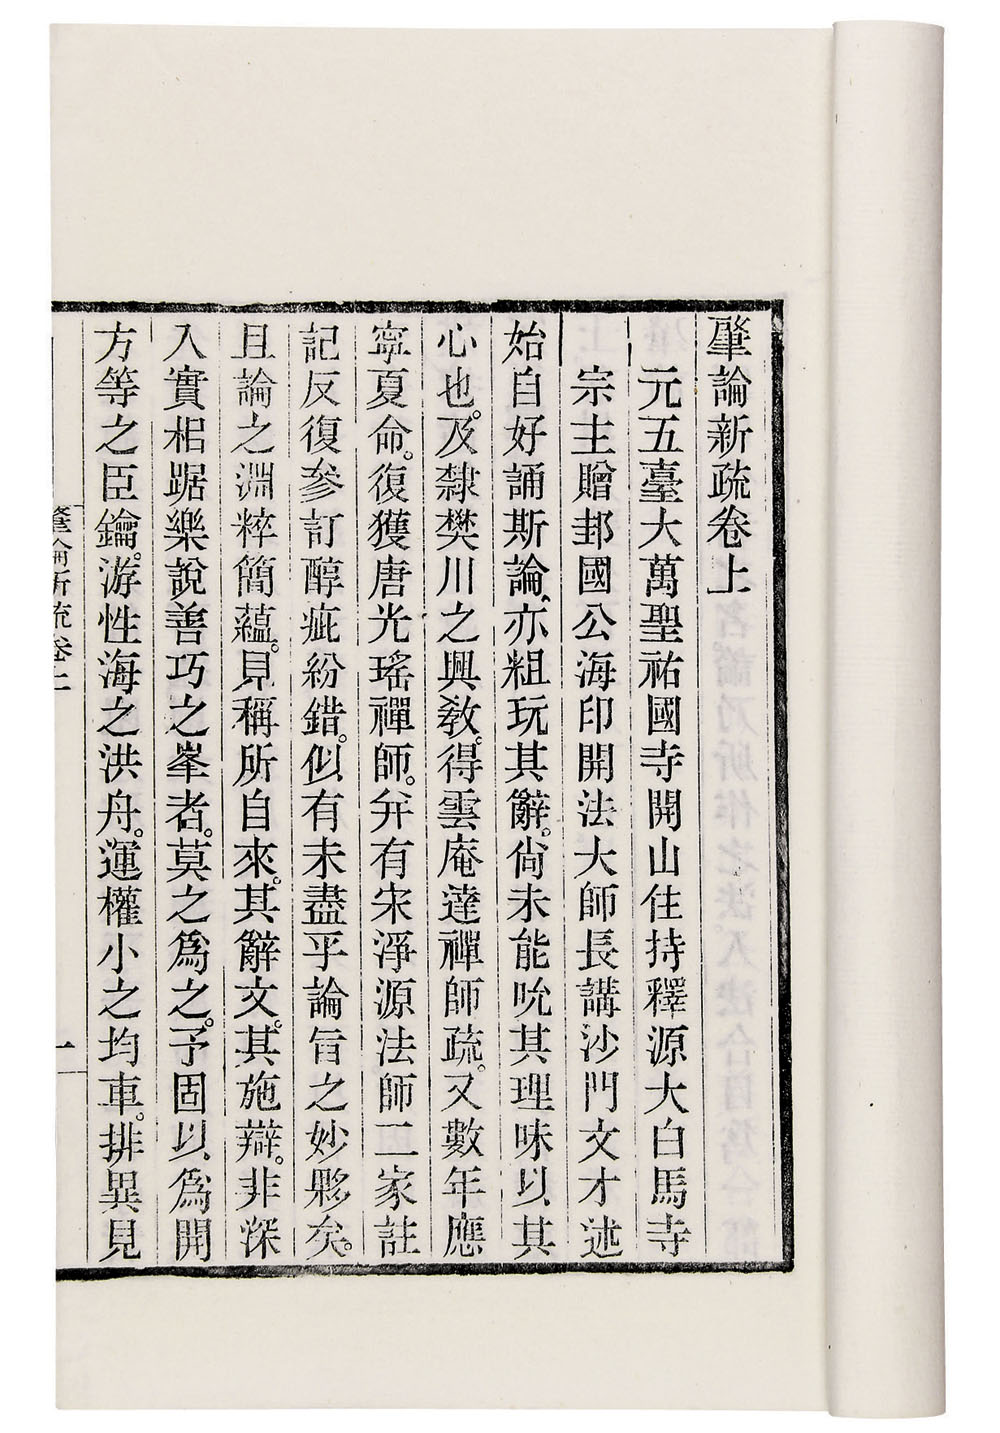 肇論新疏卷上
元五臺大萬聖祐國寺開山住持釋源大白馬寺
宗主贈邽國公海印開法大師長講沙門文才述
始自好誦斯論亦粗玩其辭。尙未能吮其理味以其
心也。及隸樊川之興敎。得雲庵達禪師疏。又數年應
寧夏命。復獲唐光瑤禪師。幷有宋淨源法師二家註
記反復參訂醇疵紛錯。似有未盡乎論旨之妙夥矣。
且論之淵粹簡蘊。見稱所自來。其辭文。其施辯。非深
入實相踞樂說善巧之峯者。莫之爲之。予固以爲開
方等之巨鑰。游性海之洪舟。運權小之均車。排異見
肇論新疏卷上
一